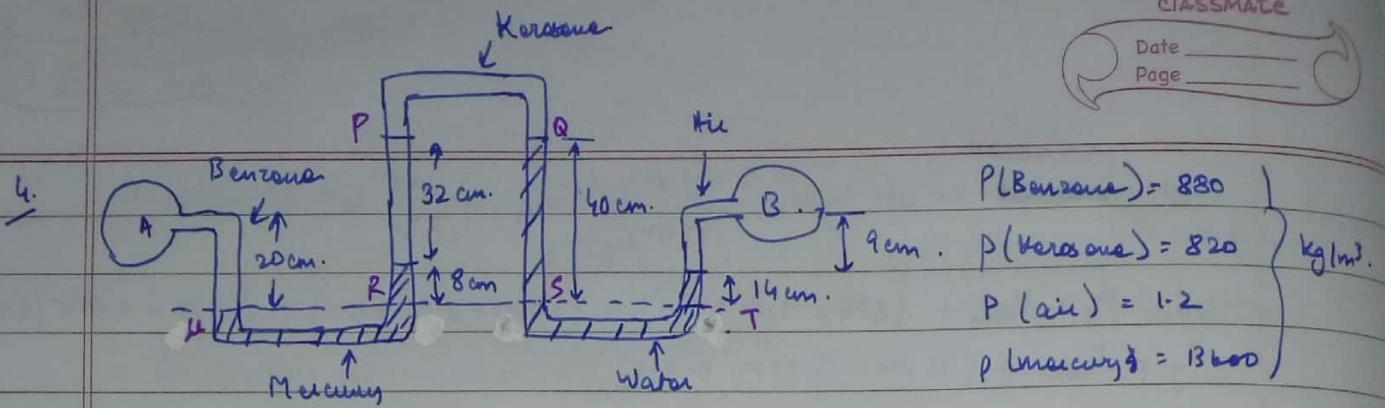 CLASSMATE
Date
Page
Kerosene
P
Q
Air
4.
Benzene
A
20 cm.
32 cm.
40 cm.
B
9 cm.
R
8 cm
S
14 cm.
T
Mercury
Water
ρ(Benzene) = 880
ρ(Kerosene) = 820
ρ(air) = 1.2
ρ(mercury) = 13600
kg/m³.